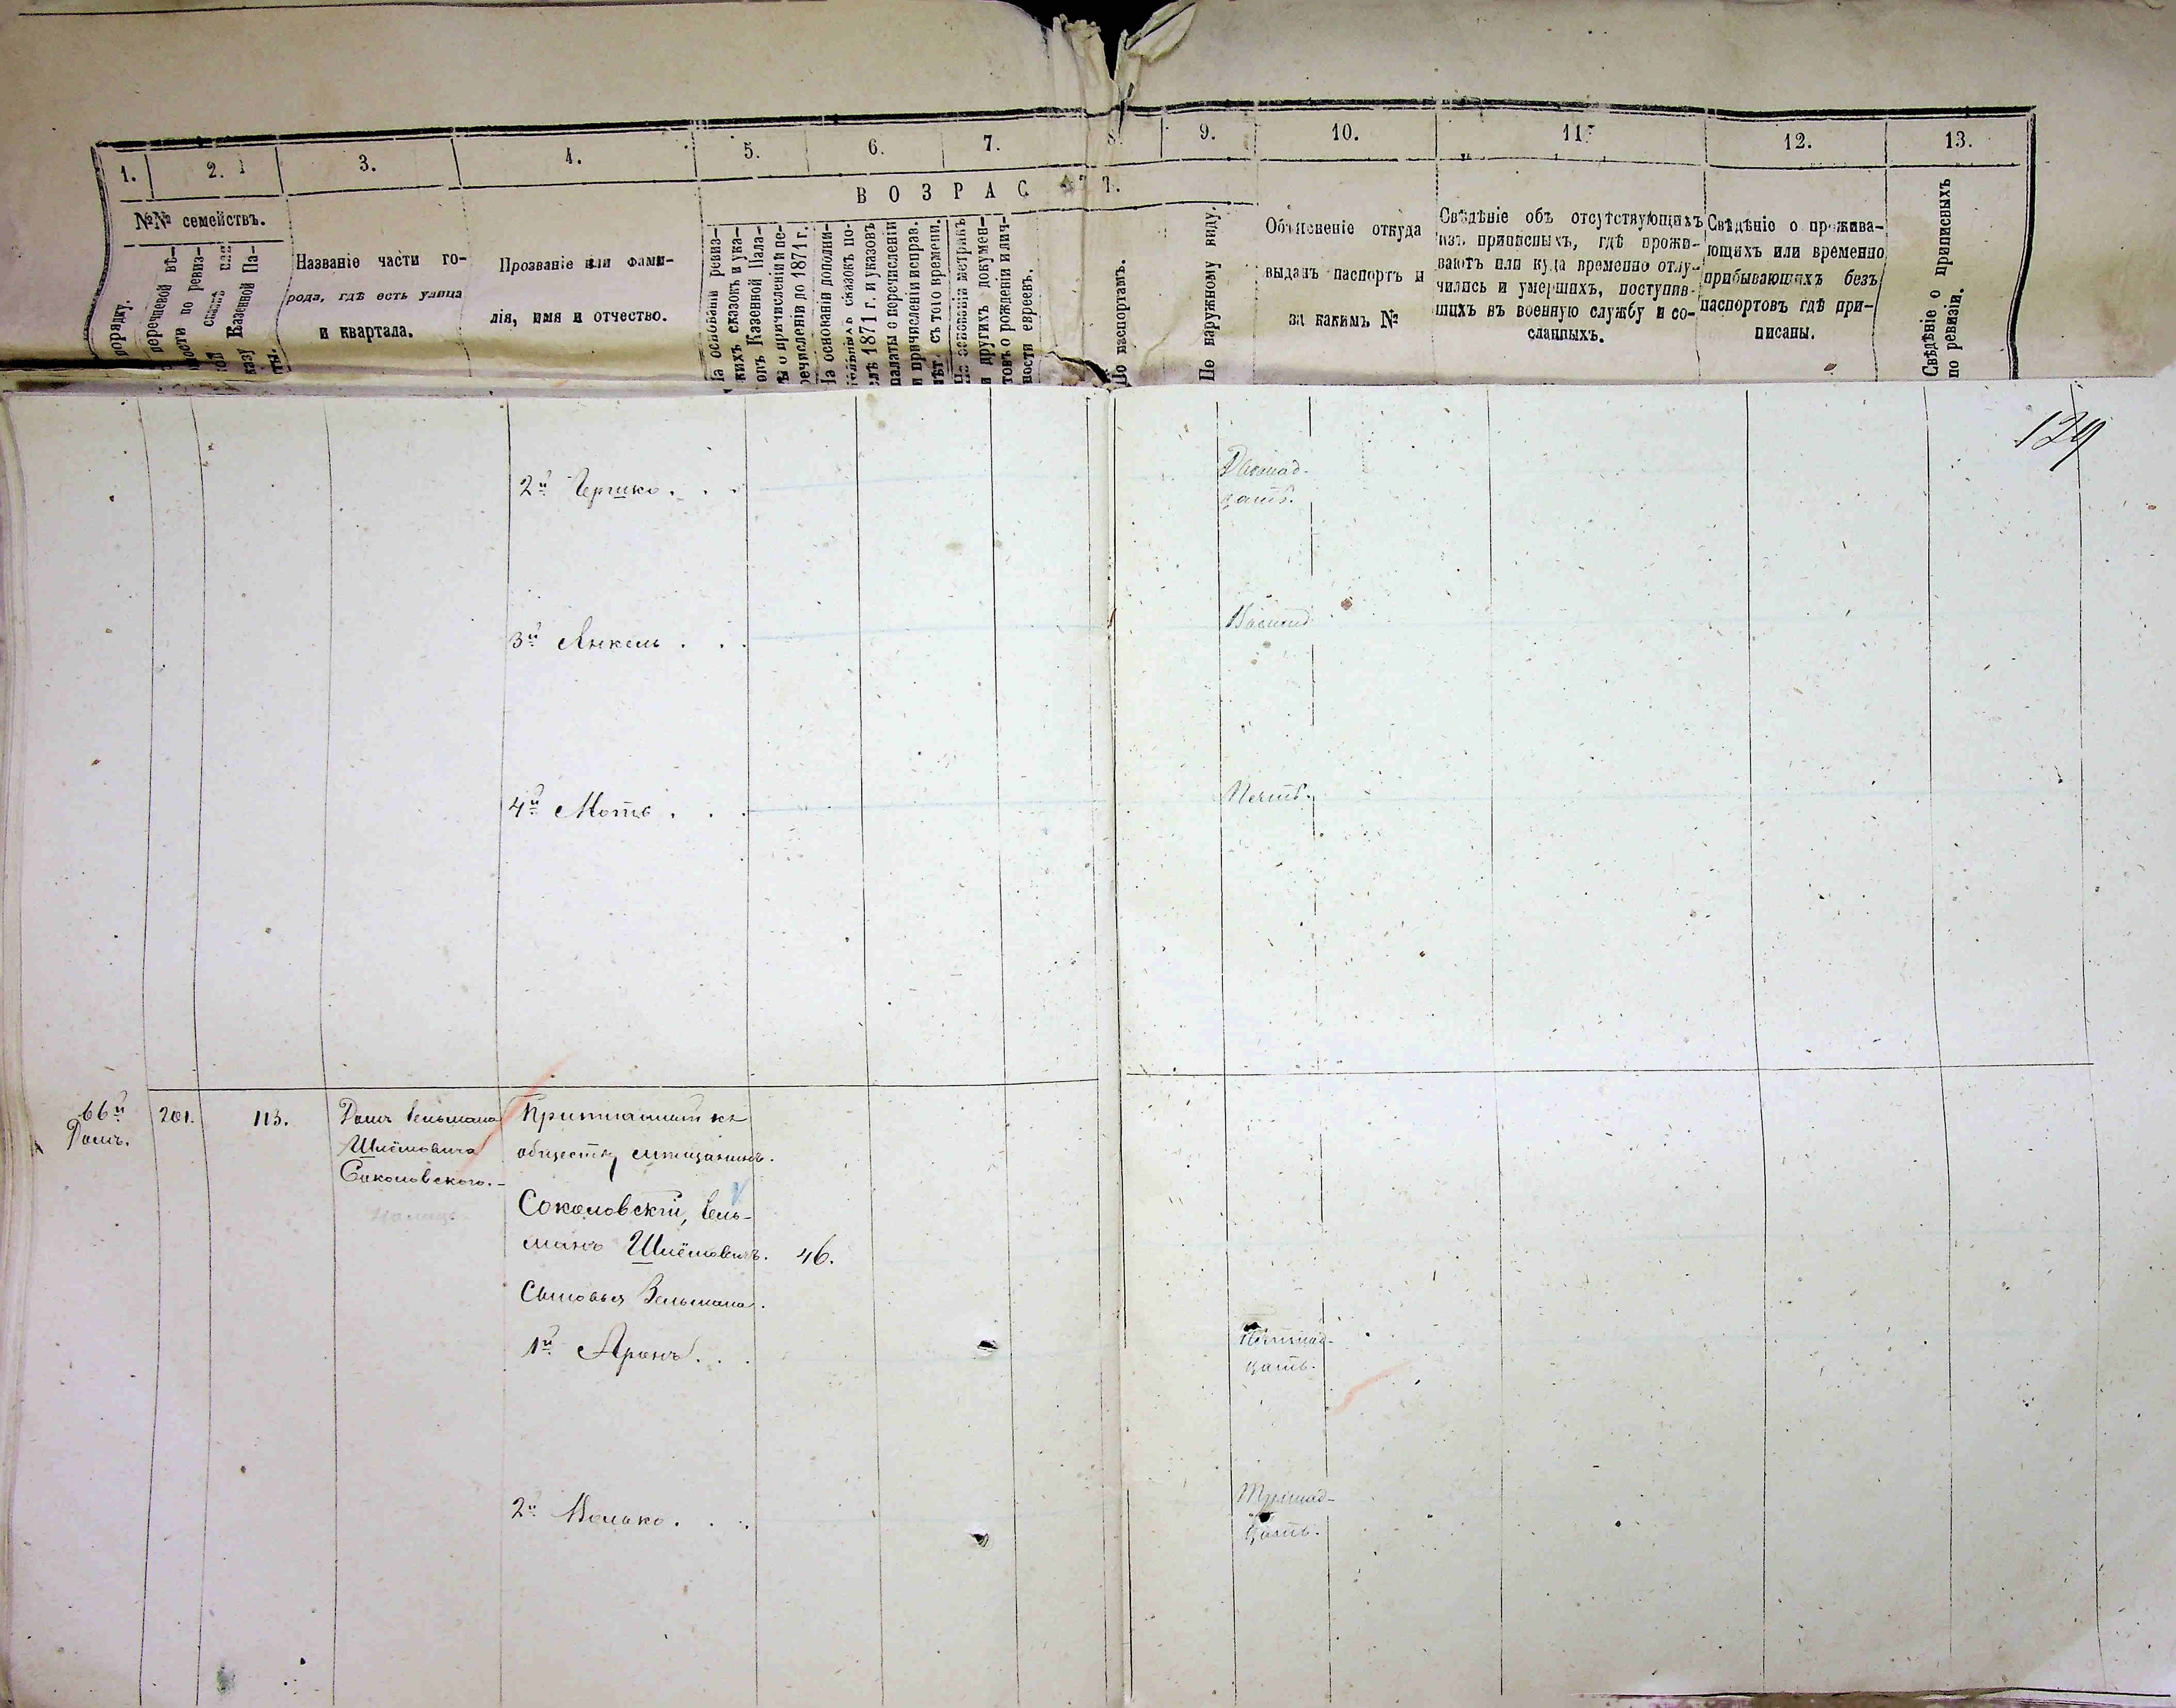 1.
2.
3.
4.
5.
6.
7.
8.
9.
10.
11.
12.
13.
№№ семействъ.
ВОЗРАСТЪ.
порядку.
перечневой вѣ-
ности по ревиз-
Казенной Па-
ты.
Названіе части го-
рода, гдѣ есть улица
и квартала.
Прозваніе или фами-
лія, имя и отчество.
На основаніи ревиз-
скихъ сказокъ и ука-
зовъ Казенной Пала-
ты о причисленіи и пе-
речисленіи до 1871 г.
На основаніи дополни-
тельныхъ сказокъ по-
слѣ 1871 г. и указовъ
палаты о перечисленіи
и причисленіи исправ.
лѣт. съ того времени.
На основаніи метрикъ
и другихъ докумен-
товъ о рожденіи и лич-
ности евреевъ.
По паспортамъ.
По наружному виду.
Объясненіе откуда
выданъ паспортъ и
за какимъ №
Свѣдѣніе объ отсутствующихъ
изъ приписныхъ, гдѣ прожи-
ваютъ или куда временно отлу-
чились и умершихъ, поступив-
шихъ въ военную службу и со-
сланныхъ.
Свѣдѣніе о прожива-
ющихъ или временно
прибывающихъ безъ
паспортовъ гдѣ при-
писаны.
Свѣдѣніе о приписныхъ
по ревизіи.
129
2й Гершко . . .
Двѣнад-
цать.
3й Янкель . . .
Восемь
4й Моть . . .
66й
Домъ.
201.
113.
Домъ Зельмана
Шлёмовича
Соколовского.
къ
обществу мѣщанинъ.
Соколовскій, Зель-
манъ Шлёмовичъ. 46.
Сыновья Зельмана.
1й Аронъ . . .
цать.
2й Волько . . .
Тринад-
цать.